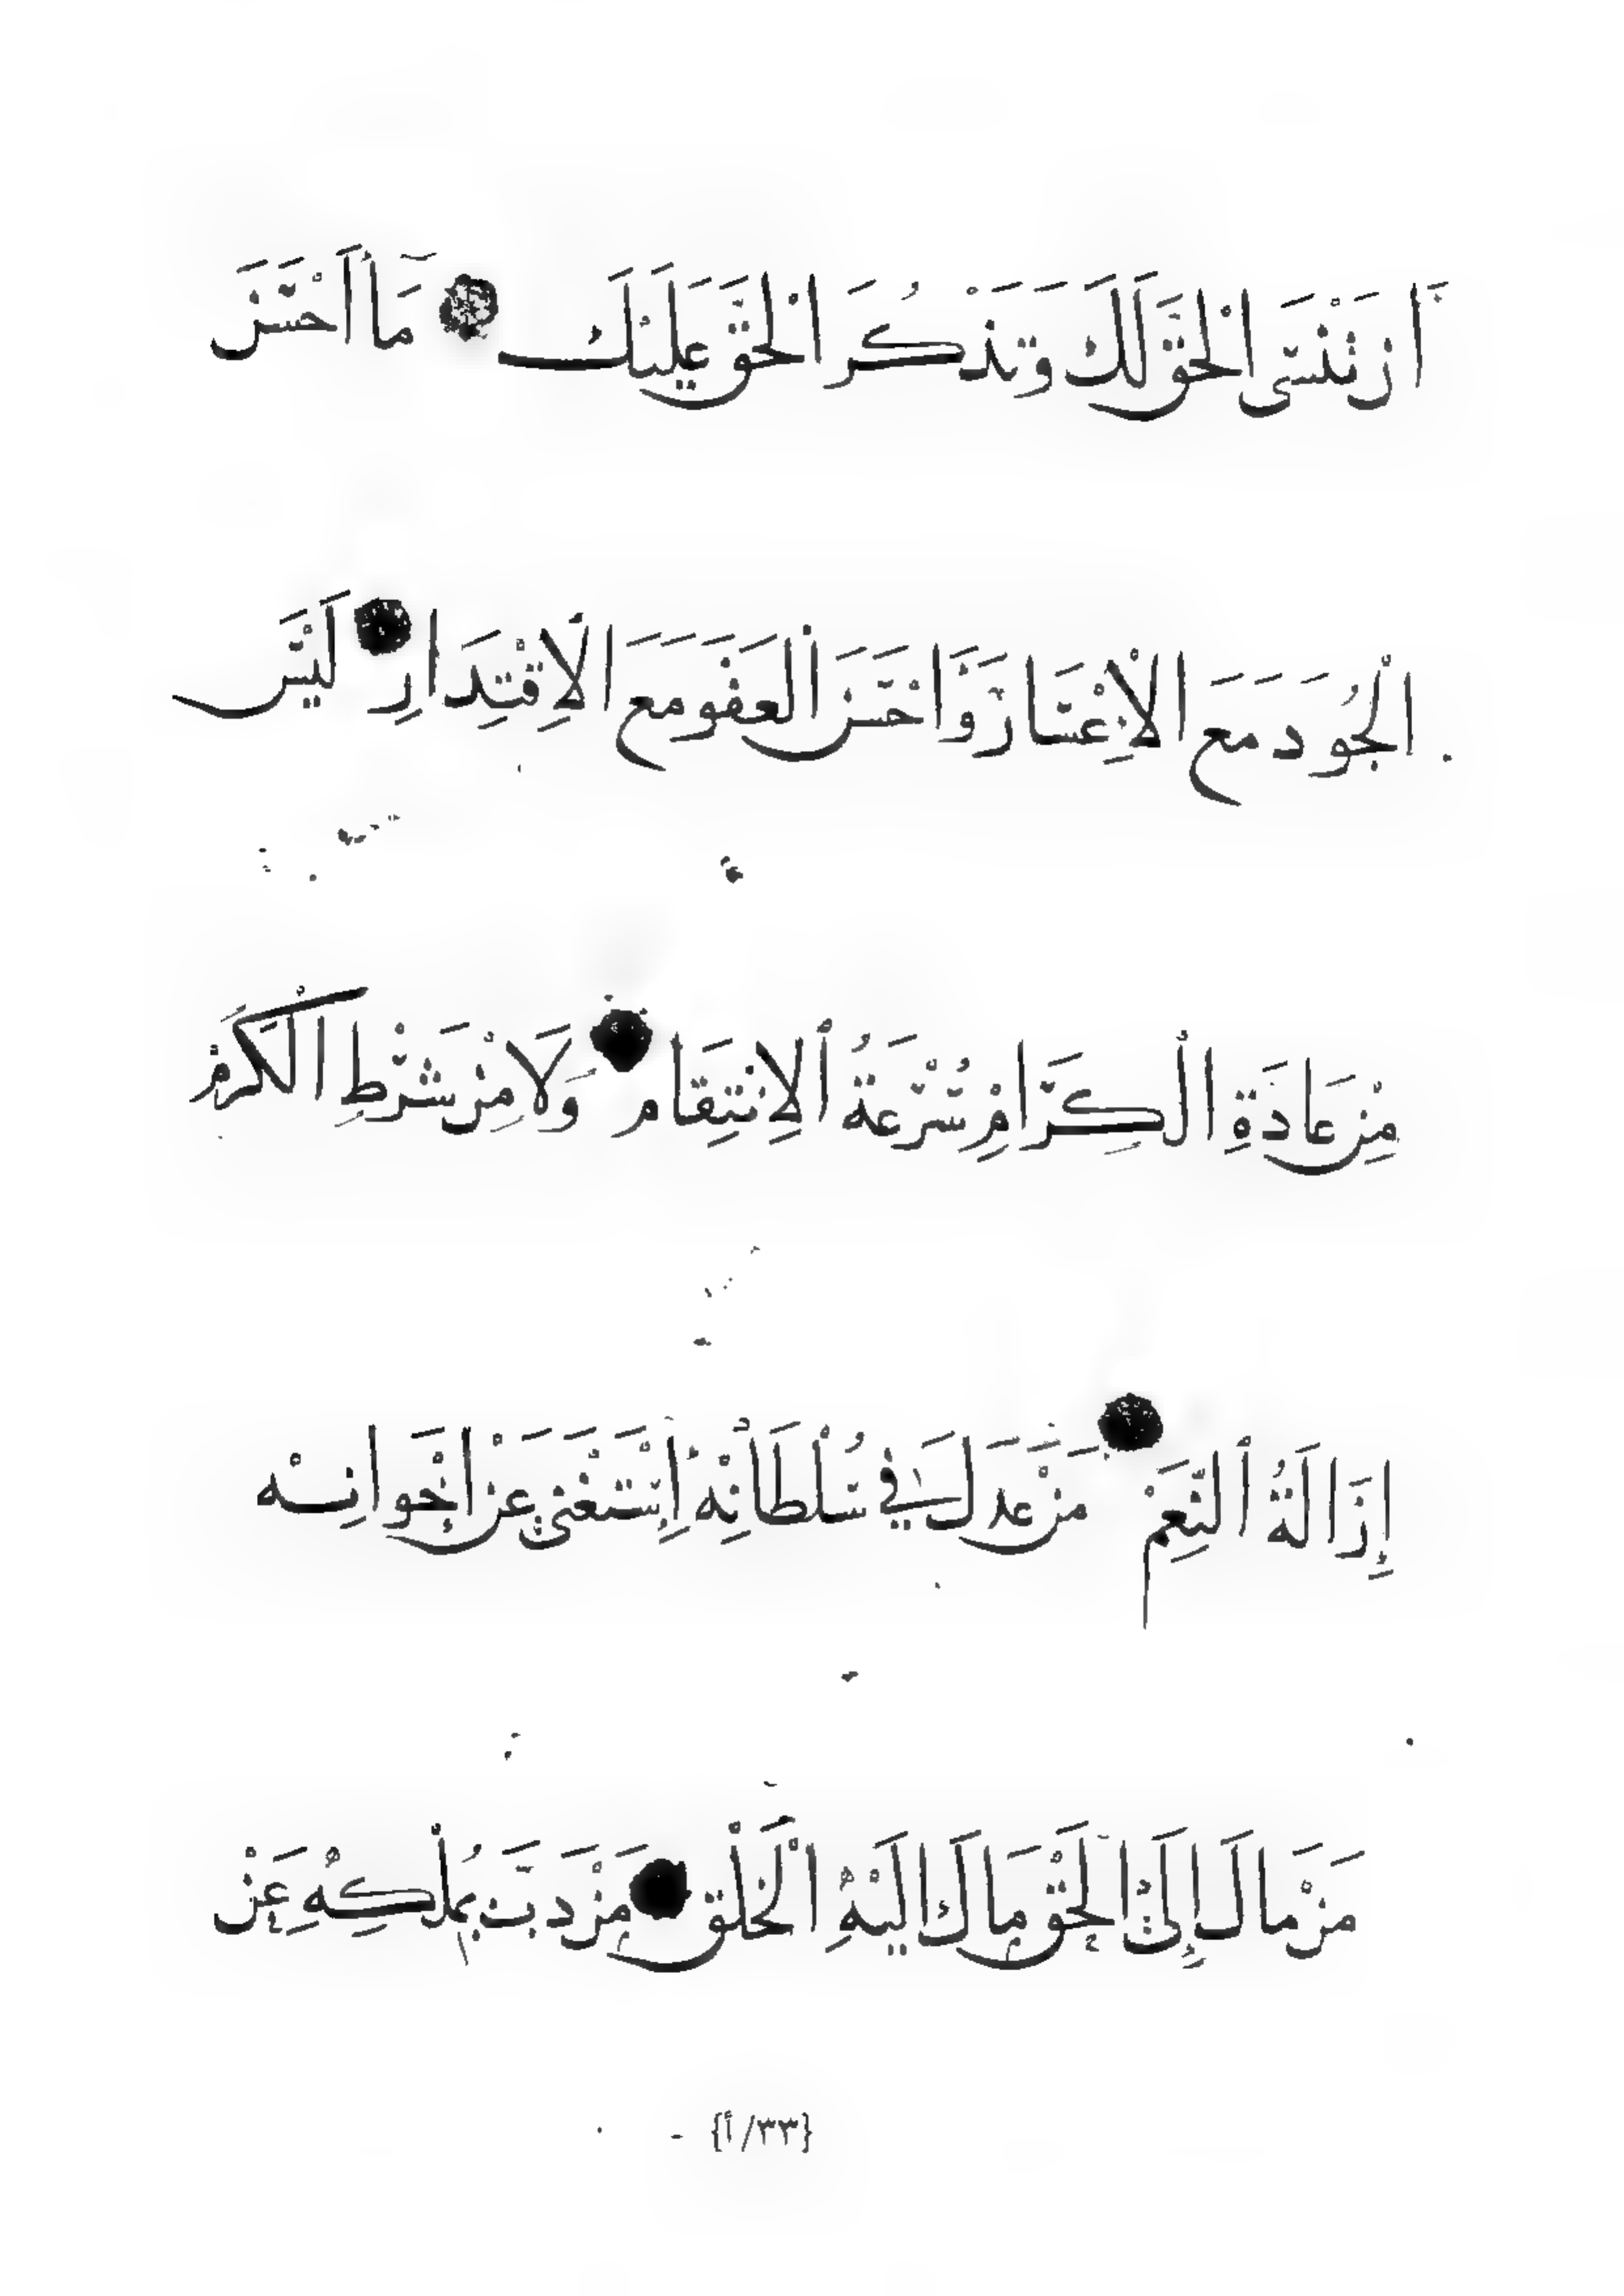 أَن تَنْسَى الْحَقَّ لَكَ وَتَذْكُرَ الْحَقَّ عَلَيْكَ مَا أَحْسَنَ
الْجُودَ مَعَ الْإِعْسَارِ وَأَحْسَنَ الْعَفْوَ مَعَ الْإِقْتِدَارِ لَيْسَ
مِنْ عَادَةِ الْكِرَامِ سُرْعَةُ الْإِنْتِقَامِ وَلَا مِنْ شَرْطِ الْكَرَمْ
إِزَالَةُ النِّعَمْ مَنْ عَدَلَ فِي سُلْطَانِهْ إِسْتَغْنَى عَنْ إِخْوَانِهْ
مَنْ مَالَ إِلَى الْحَقِّ مَالَ إِلَيْهِ الْخَلْقُ مَنْ دَبَّ بِمُلْكِهِ عَنْ
{٣٣/أ}